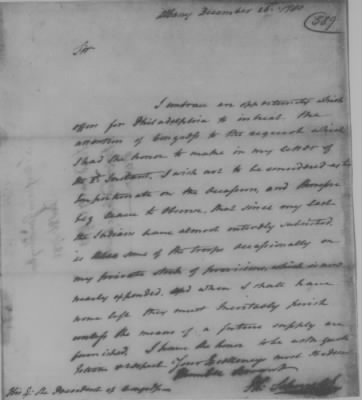 Albany December 26th 1780
589
Sir
I embrace an opportunity which
offers for Philadelphia to intreat the
attention of Congress to the request which
I had the honor to make in my letter of
the Instant, I wish not to be considered as
importunate on the Occasion, and therefore
beg leave to observe, that since my last
the Indians have almost intirely subsisted
as some of the troops occasionally on
my private stock of provisions, which is now
nearly expended, and when I shall have
none left they must inevitably perish
unless the means of a future supply are
furnished. I have the honor to be with great
Esteem & respect Your Excellency most Obedient
Humble Servant
Ph: Schuyler
His Ex: the President of Congress